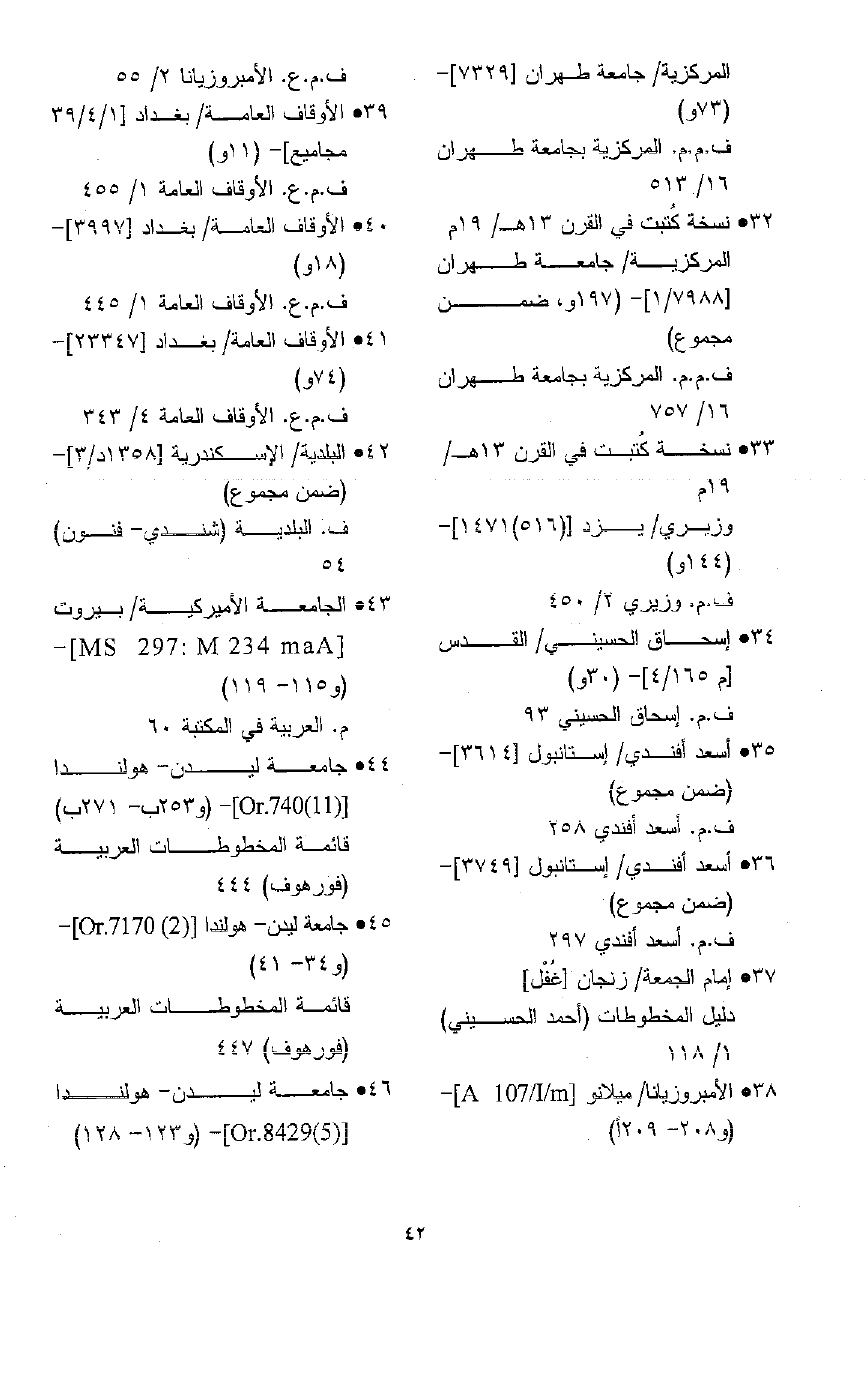 المركزية/ جامعة طهران [٧٣٢٩]-
(٧٣و)
ف.م.م. المركزية بجامعة طهران
١٦/ ٥١٣
٣٢• نسخة كُتبت في القرن ١٣هـ/ ١٩م
المركزية/ جامعة طهران
[١/٧٩٨٨]- (١٩٧و، ضمن
مجموع)
ف.م.م. المركزية بجامعة طهران
١٦/ ٧٥٧
٣٣• نسخة كُتبت في القرن ١٣هـ/
١٩م
وزيري/ يزد [(٥١٦)١٤٧١]-
(١٤٤و)
ف.م. وزيري ٢/ ٤٥٠
٣٤• إسحاق الحسيني/ القدس
[م ٤/١٦٥]- (٣٠و)
ف.م. إسحاق الحسيني ٩٣
٣٥• أسعد أفندي/ إستانبول [٣٦١٤]-
(ضمن مجموع)
ف.م. أسعد أفندي ٢٥٨
٣٦• أسعد أفندي/ إستانبول [٣٧٤٩]-
(ضمن مجموع)
ف.م. أسعد أفندي ٢٩٧
٣٧• إمام الجمعة/ زنجان [غُفْل]
دليل المخطوطات (أحمد الحسيني)
١/ ١١٨
٣٨• الأمبروزيانا/ ميلانو [A 107/I/m]-
(و٢٠٨- ٢٠٩أ)
ف.م.ع. الأمبروزيانا ٢/ ٥٥
٣٩• الأوقاف العامة/ بغداد [٣٩/٤/١
مجاميع]- (١١و)
ف.م.ع. الأوقاف العامة ١/ ٤٥٥
٤٠• الأوقاف العامة/ بغداد [٣٩٩٧]-
(١٨و)
ف.م.ع. الأوقاف العامة ١/ ٤٤٥
٤١• الأوقاف العامة/ بغداد [٢٣٣٤٧]-
(٧٤و)
ف.م.ع. الأوقاف العامة ٤/ ٣٤٣
٤٢• البلدية/ الإسكندرية [١٣٥٨د/٣]-
(ضمن مجموع)
ف. البلدية (شندي- فنون)
٥٤
٤٣• الجامعة الأميركية/ بيروت
[MS 297: M 234 maA]-
(و١١٥- ١١٩)
م. العربية في المكتبة ٦٠
٤٤• جامعة ليدن- هولندا
[Or.740(11)]- (و٢٥٣ب- ٢٧١ب)
قائمة المخطوطات العربية
(فورهوف) ٤٤٤
٤٥• جامعة ليدن- هولندا [Or.7170 (2)]-
(و٣٤- ٤١)
قائمة المخطوطات العربية
(فورهوف) ٤٤٧
٤٦• جامعة ليدن- هولندا
[Or.8429(5)]- (و١٢٣- ١٢٨)
٤٢